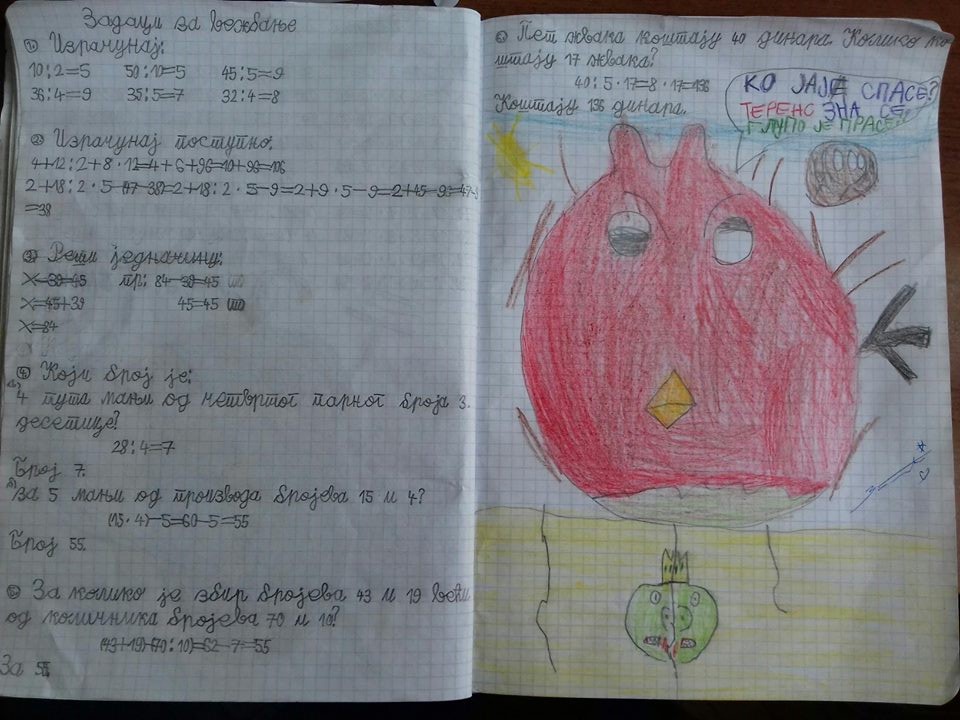 Задаци за вежбање
1) Израчунај:
10:2=5 50:10=5 45:5=9
36:4=9 35:5=7 32:4=8
2) Израчунај поступно:
4+12:2+8·12=4+6+96=10+96=106
2+18:2·5-(47-38)=2+18:2·5-9=2+9·5-9=2+45-9=47-9
=38
3) Реши једначину:
x-39=45 пр: 84-39=45
x=45+39 45=45
x=84
4) Који број је:
а) 4 пута мањи од четвртог парног броја 3.
десетице?
28:4=7
Број 7.
б) За 5 мањи од производа бројева 15 и 4?
(15·4)-5=60-5=55
Број 55.
5) За колико је збир бројева 43 и 19 већи
од количника бројева 70 и 10?
(43+19)-(70:10)=62-7=55
За 55
6) Пет жвака коштају 40 динара. Колико ко
штају 17 жвака?
40:5·17=8·17=136
Коштају 136 динара.
КО ЈАЈЕ СПАСЕ?
ТЕРЕНС ЗНА СЕ,
ГЛУПО ЈЕ ПРАСЕ!